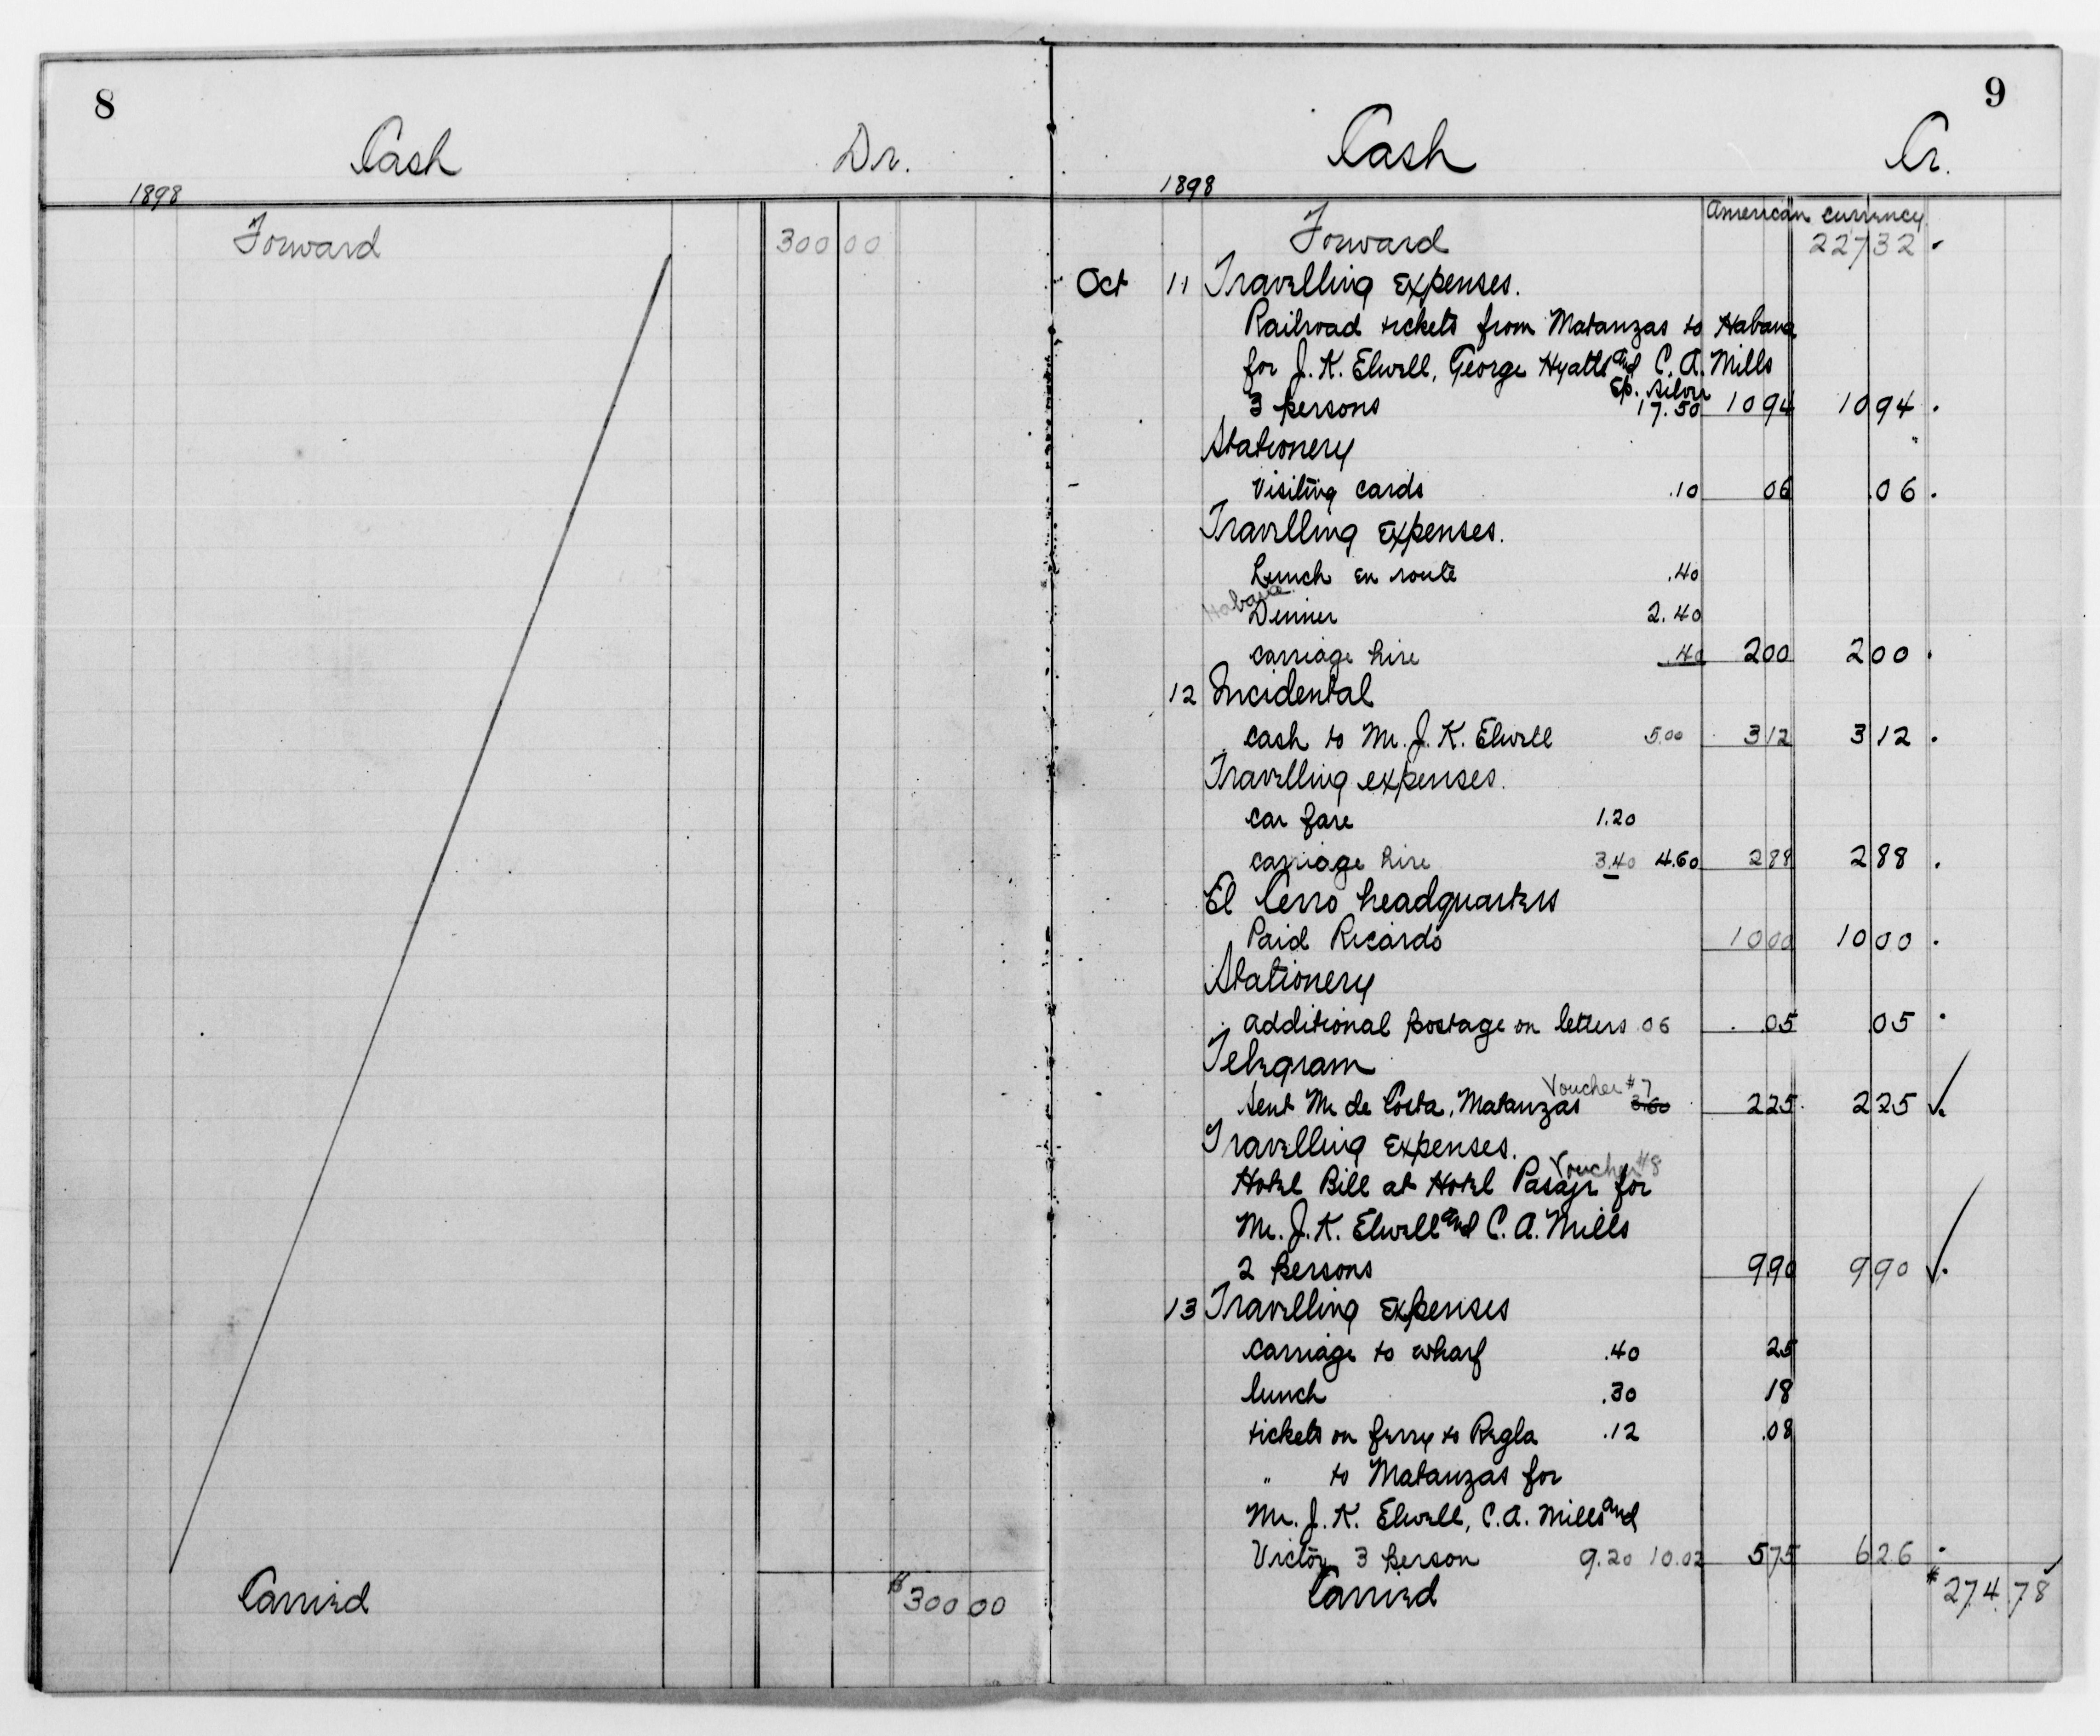 8
Cash Dr.
1898
Forward 300 00
Carried $300 00
9
Cash Cr.
1898
American currency
Forward 227 32
Oct 11 Travelling expenses.
Railroad tickets from Matanzas to Habana
for J. K. Elwell, George Hyatt and C. A. Mills
Sp. silver
3 persons 17.50 10 94 10 94
Stationery
Visiting cards .10 06 .06
Travelling expenses.
Lunch en route .40
Habana
Dinner 2.40
carriage hire .40 2 00 2 00
12 Incidental
cash to Mr. J. K. Elwell 5.00 3 12 3 12
Travelling expenses.
car fare 1.20
carriage hire 3.40 4.60 2 88 2 88
El Cerro headquarters
Paid Ricardo 10 00 10 00
Stationery
additional postage on letters .06 .05 .05
Telegram
Voucher #7
Sent Mr de Costa, Matanzas 3.60 2 25 2 25
Travelling expenses.
Voucher #8
Hotel Bill at Hotel Pasaje for
Mr. J. K. Elwell and C. A. Mills
2 persons 9 90 9 90
13 Travelling expenses
carriage to wharf .40 25
lunch .30 18
tickets on ferry to Regla .12 .08
" to Matanzas for
Mr. J. K. Elwell, C. A. Mills and
Victor, 3 person 9.20 10.02 5 75 6 26
Carried $274 78